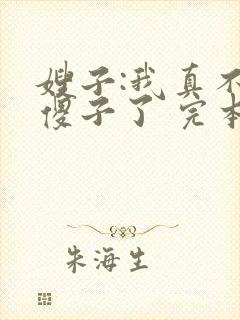 嫂子:我真不
傻子了 完本
朱海生